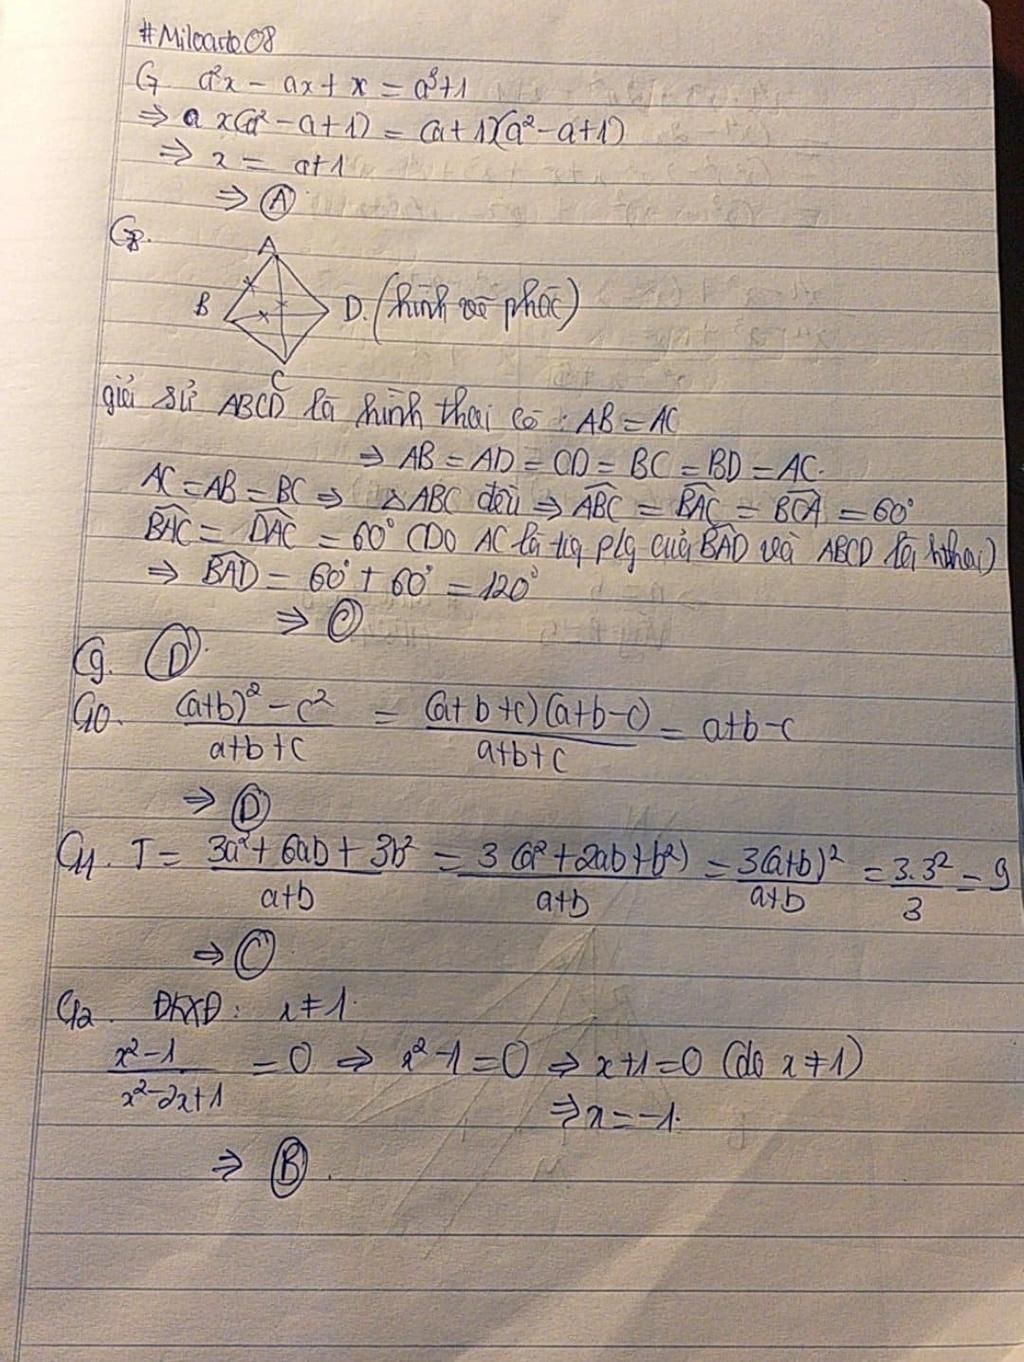 #Miloarto08
C7. a²x − ax + x = a³+1
⇒ a x(a² − a + 1) = (a + 1)(a² − a + 1)
⇒ x = a+1
⇒ A
C8.
A
B
D. (hình vẽ phác)
C
giả sử ABCD là hình thoi có : AB = AC
⇒ AB = AD = CD = BC = BD = AC.
AC = AB = BC ⇒ △ABC đều ⇒ ABC = BAC = BCA = 60°
BAC = DAC = 60° (Do AC là tia p/g của BAD và ABCD là hthoi)
⇒ BAD = 60° + 60° = 120°
⇒ C
C9. D.
C10. (a+b)² − c² / a+b+c = (a+b+c)(a+b−c) / a+b+c = a+b−c
⇒ D
C11. T = 3a² + 6ab + 3b² / a+b = 3(a² + 2ab + b²) / a+b = 3(a+b)² / a+b = 3.3² / 3 = 9
⇒ C
C12. ĐKXĐ: x ≠ 1.
x²−1 / x²−2x+1 = 0 ⇒ x²−1 = 0 ⇒ x+1 = 0 (do x ≠ 1)
⇒ x = −1.
⇒ B.